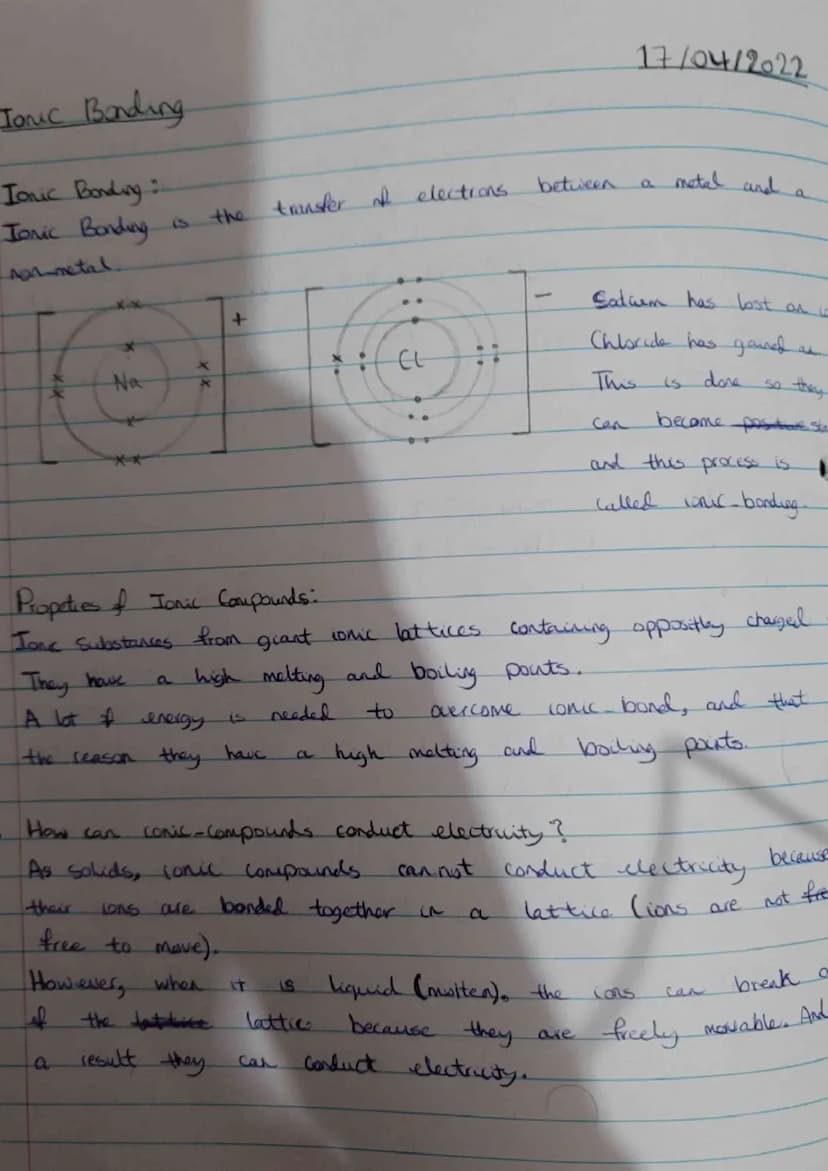 17/04/2022
Ionic Bonding
Ionic Bonding:
Ionic Bonding is the transfer of electrons between a metal and a
non-metal.
+
-
Na
Cl
Sodium has lost an
Chloride has gained
This is done so they
can become
and this process is
called ionic-bonding.
Propeties of Ionic Compounds:
Ionc substances from giant ionic lattices containing oppositley charged
They have a high melting and boiling points.
A lot of energy is needed to overcome ionic-bond, and that
the reason they have a high melting and boiling points.
How can ionic-compounds conduct electricity?
As solids, ionic compounds cannot conduct electricity because
their ions are bonded together in a lattice (ions are not fre
free to move).
However, when it is liquid (molten), the ions can break
of the lattice because they are freely movable. And
a result they can conduct electricity.